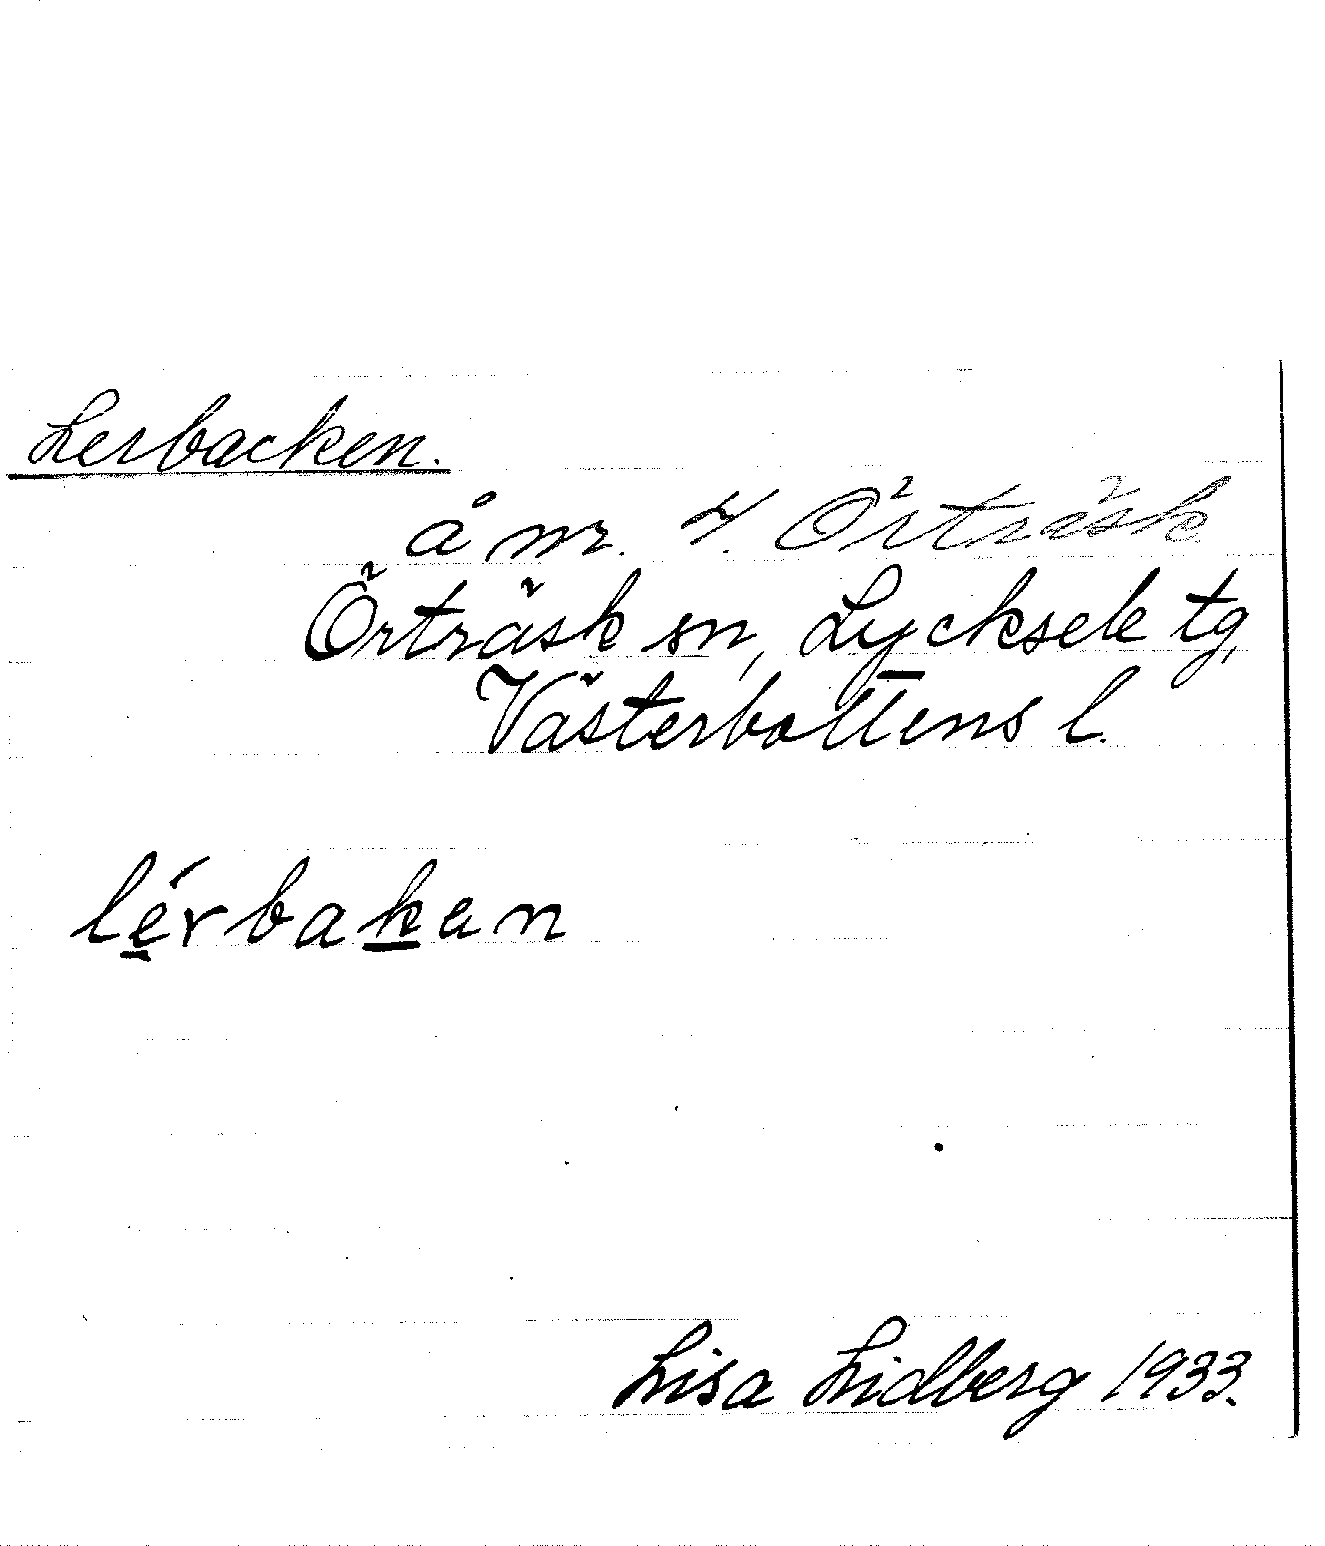 Lerbacken.
å nr. 4. Örträsk
Örträsk sn, Lycksele tg,
Västerbottens l.
lérbakan
Lisa Lidberg 1933.